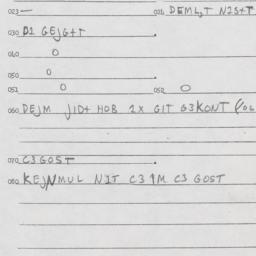 023 — 024 DEML,T N2S+T
030 D1 GEJG+T
040 O
050 O
051 O 052 O
060 DEJM JID+ HOB 2X GIT G3KONT
070 C3GOST
080 KEJNMUL NIT C3 1M C3 GOST